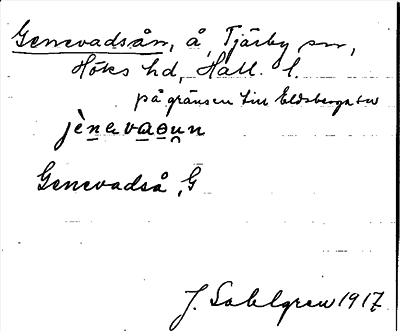 Genevadsån, å, Tjärby sn,
Höks hd, Hall. l.
på gränsen till Eldsberga sn
jènavaəun
Genevadså, G
J. Sahlgren 1917